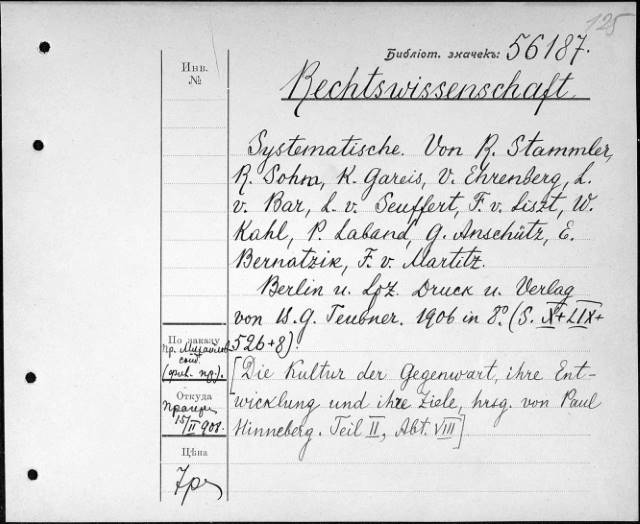 125
Библіот. значекъ: 56187.
Инв.
№
Rechtswissenschaft
Systematische. Von R. Stammler,
R. Sohm, K. Gareis, V. Ehrenberg, L.
v. Bar, L. v. Seuffert, F. v. Liszt, W.
Kahl, P. Laband, G. Anschütz, E.
Bernatzik, F. v. Martitz.
Berlin u. Lpz. Druck u. Verlag
von B. G. Teubner. 1906 in 8º. (S. X+LIX+
526+8)
[Die Kultur der Gegenwart, ihre Ent-
wicklung und ihre Ziele, hrsg. von Paul
Hinneberg. Teil II, Abt. VIII]
По заказу
пр.
Откуда
15/II 908.
Цѣна
7р